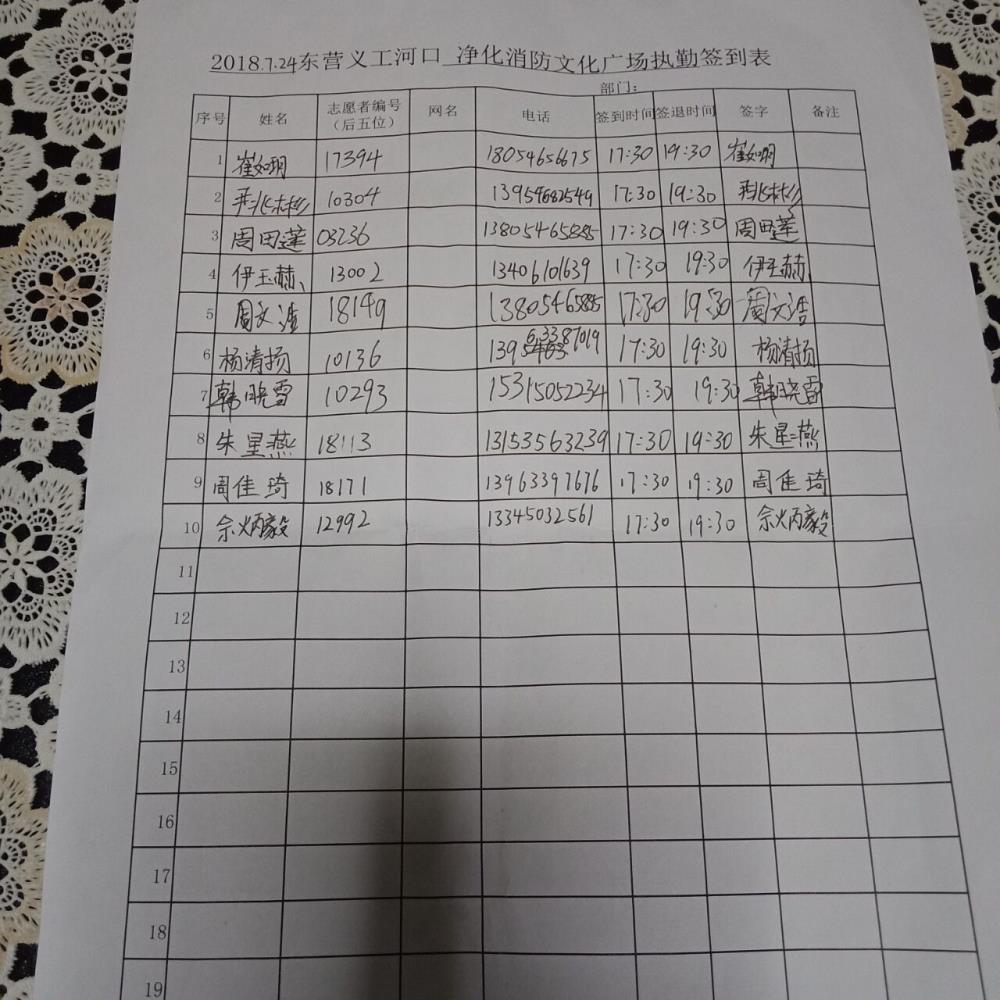 2018.7.24东营义工河口 净化消防文化广场执勤签到表
部门：
序号 姓名 志愿者编号（后五位） 网名 电话 签到时间 签退时间 签字 备注
1 崔如明 17394 18054656675 17:30 19:30 崔如明
2 10304 13954682549 17:30 19:30
3 周田莲 03236 13805465885 17:30 19:30 周田莲
4 伊玉赫 13002 13406101639 17:30 19:30 伊玉赫
5 周文浩 18149 13805465885 17:30 19:30 周文浩
6 杨清扬 10136 17:30 19:30 杨清扬
7 韩晓雪 10293 15315052234 17:30 19:30 韩晓雪
8 朱星燕 18113 13153563239 17:30 19:30 朱星燕
9 周佳琦 18171 13963397676 17:30 19:30 周佳琦
10 佘炳毅 12992 13345032561 17:30 19:30 佘炳毅
11
12
13
14
15
16
17
18
19